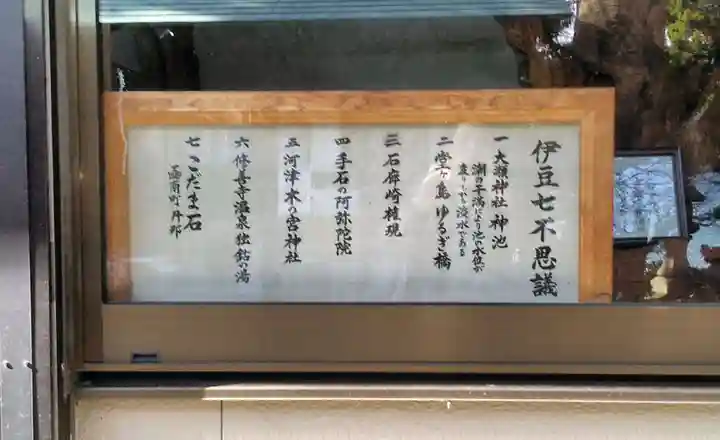 伊豆七不思議
一 大瀬神社 神池
潮の干満により池の水位が
変りしかも淡水である
二 堂ヶ島 ゆるぎ橋
三 石廊崎権現
四 手石の阿弥陀院
五 河津木の宮神社
六 修善寺温泉独鈷の湯
七 こだま石
函南町丹那